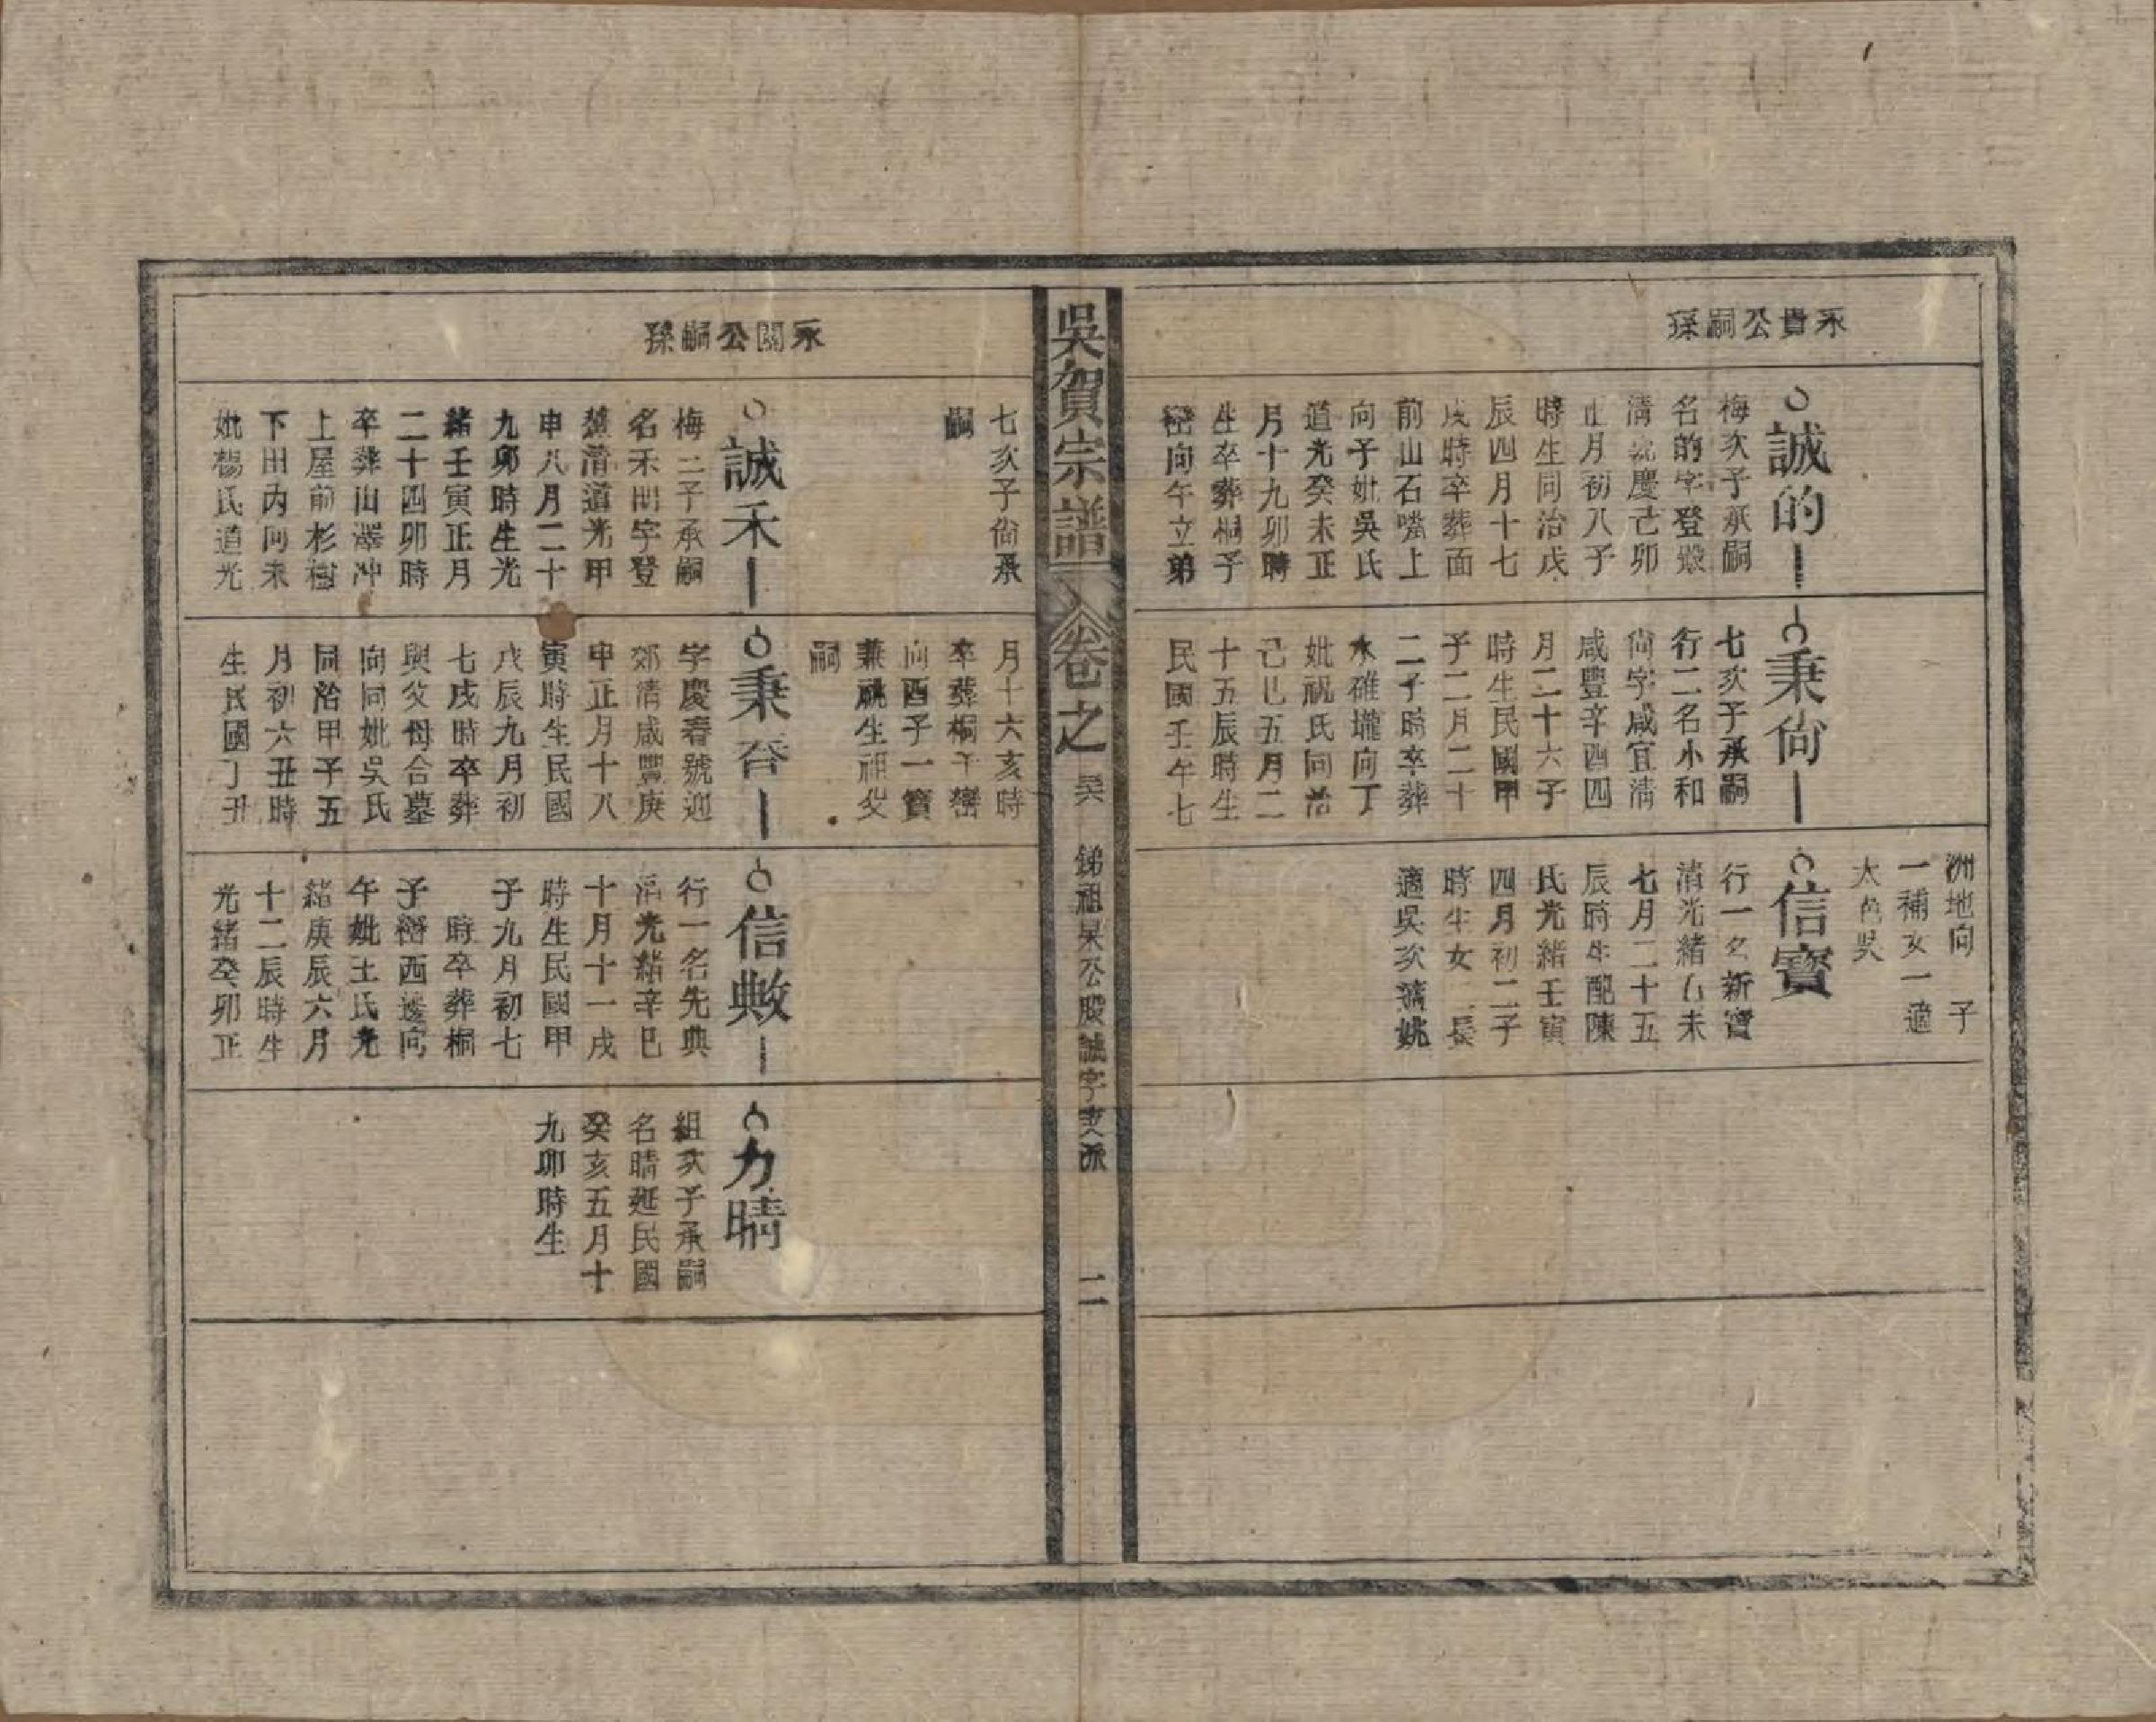 永貴公嗣孫
誠的
梅次子承嗣
名的字登
清嘉慶己卯
正月初八子
時生同治戊
辰四月十七
戌時卒葬面
前山石嘴上
向子妣吳氏
道光癸未正
月十九卯時
生卒葬桐子
向午立弟
七次子尙承
嗣
秉尙
七次子承嗣
行二名小和
尙字咸宜清
咸豐辛酉四
月二十六子
時生民國甲
子二月二十
二子時卒葬
水碓壠向丁
妣祝氏同治
己巳五月二
十五辰時生
民國壬午七
月十六亥時
卒葬桐子
向酉子一寶
兼祧生祖父
嗣
洲地向 子
一補女一適
大邑吳
信寶
行一名新寶
清光緒乙未
七月二十五
辰時生配陳
氏光緒壬寅
四月初二子
時生女二長
適吳次適姚
吳賀宗譜
卷之
公股誠字支派
二
永關公嗣孫
誠禾
梅三子承嗣
名禾字登
清道光甲
申八月二十
九卯時生光
緒壬寅正月
二十四卯時
卒葬山澤冲
上屋前杉樹
下田內向未
妣楊氏道光
秉春
字慶春號迎
郊清咸豐庚
申正月十八
寅時生民國
戊辰九月初
七戌時卒葬
與父母合墓
向同妣吳氏
同治甲子五
月初六丑時
生民國丁丑
信敟
行一名先典
清光緒辛巳
十月十一戌
時生民國甲
子九月初七
時卒葬桐
子西邊向
午妣王氏光
緒庚辰六月
十二辰時生
光緒癸卯正
力晴
組次子承嗣
名晴延民國
癸亥五月十
九卯時生